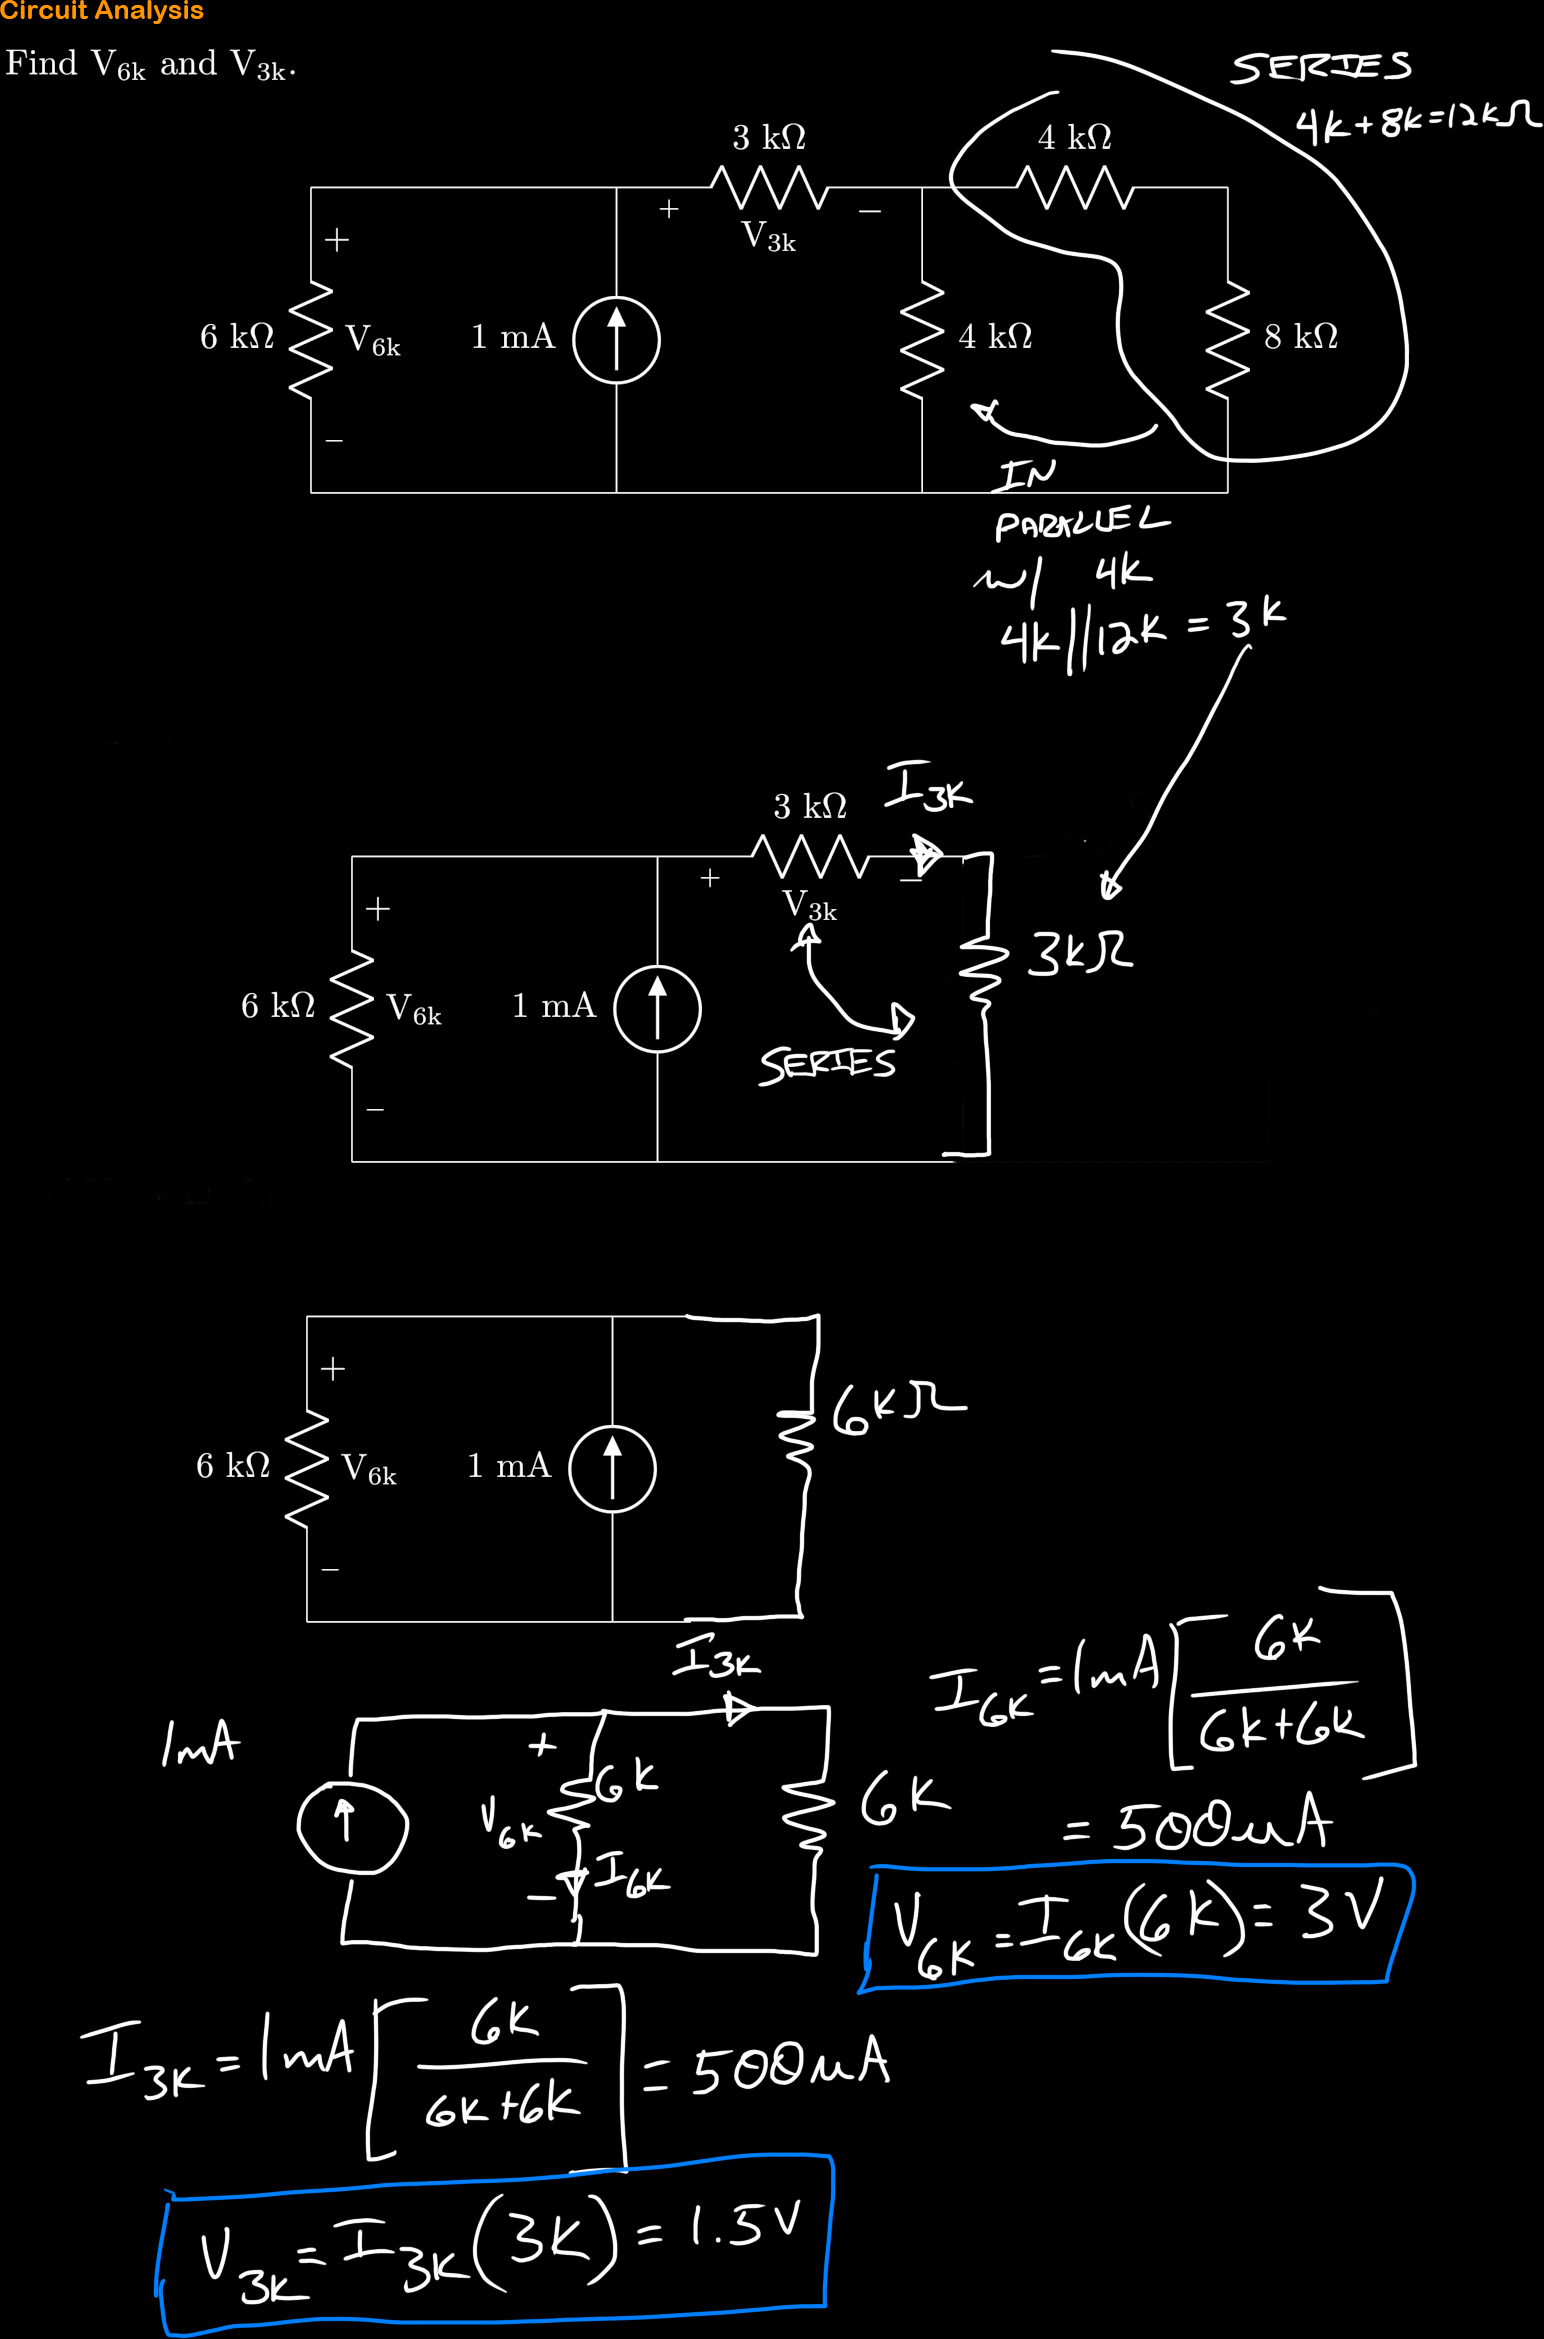 Circuit Analysis
Find V6k and V3k.
SERIES
4k+8k=12kΩ
3 kΩ
4 kΩ
+
V3k
−
+
6 kΩ
V6k
1 mA
4 kΩ
8 kΩ
−
IN
PARALLEL
w/ 4k
4k||12k = 3k
I3k
3 kΩ
+
V3k
−
+
3kΩ
6 kΩ
V6k
1 mA
SERIES
−
+
6kΩ
6 kΩ
V6k
1 mA
−
I3k
1mA
+
6k
V6k
I6k
−
6k
I6k = 1mA[6k/(6k+6k)]
= 500uA
V6k = I6k(6k) = 3V
I3k = 1mA[6k/(6k+6k)] = 500uA
V3k = I3k(3k) = 1.5V